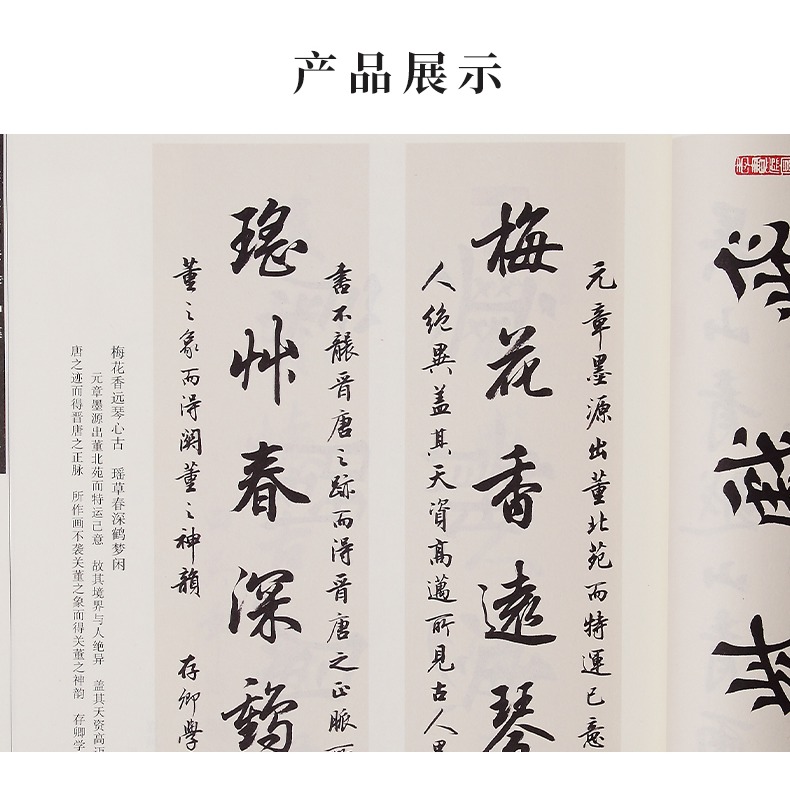 产品展示
元章墨源出董北苑而特運己意
梅花香遠琴
人绝異蓋其天資高邁所見古人
書不襲晉唐之跡而得晉唐之正脈
瑤艸春深鶴
董之象而得関董之神韻 存卿学
梅花香远琴心古 瑶草春深鹤梦闲
元章墨源出董北苑而特运己意 故其境界与人绝异 盖其天资高迈
唐之迹而得晋唐之正脉 所作画不袭关董之象而得关董之神韵 存卿学